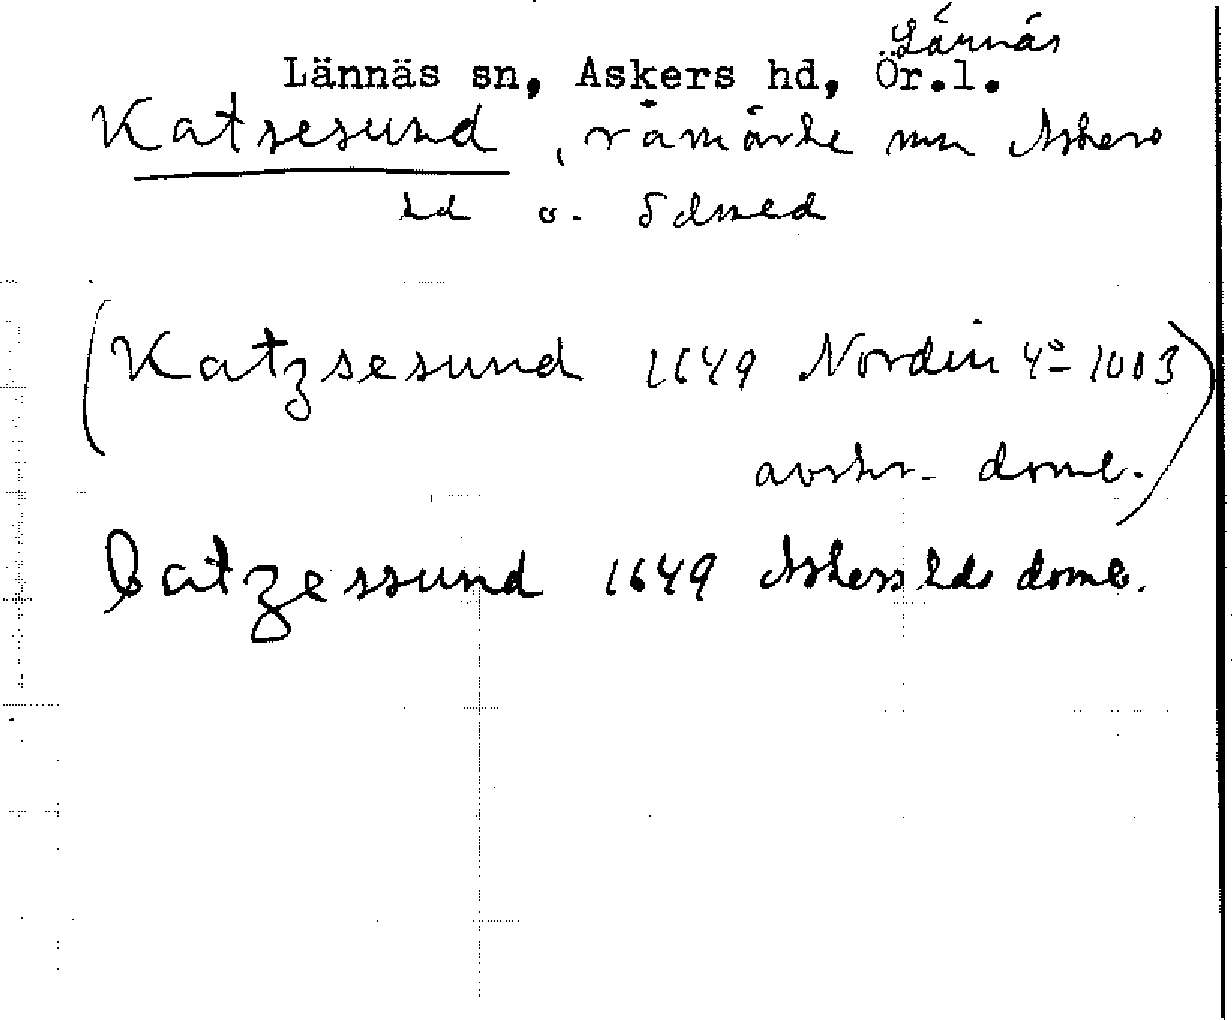 Lännäs
Lännäs sn, Askers hd, Ör.l.
Katsesund, råmärke mn Askers
hd o. Ödmed
(Katzsesund 1649 Nordin 4º 1003
avskr. domb.)
Catzessund 1649 Askers hds domb.